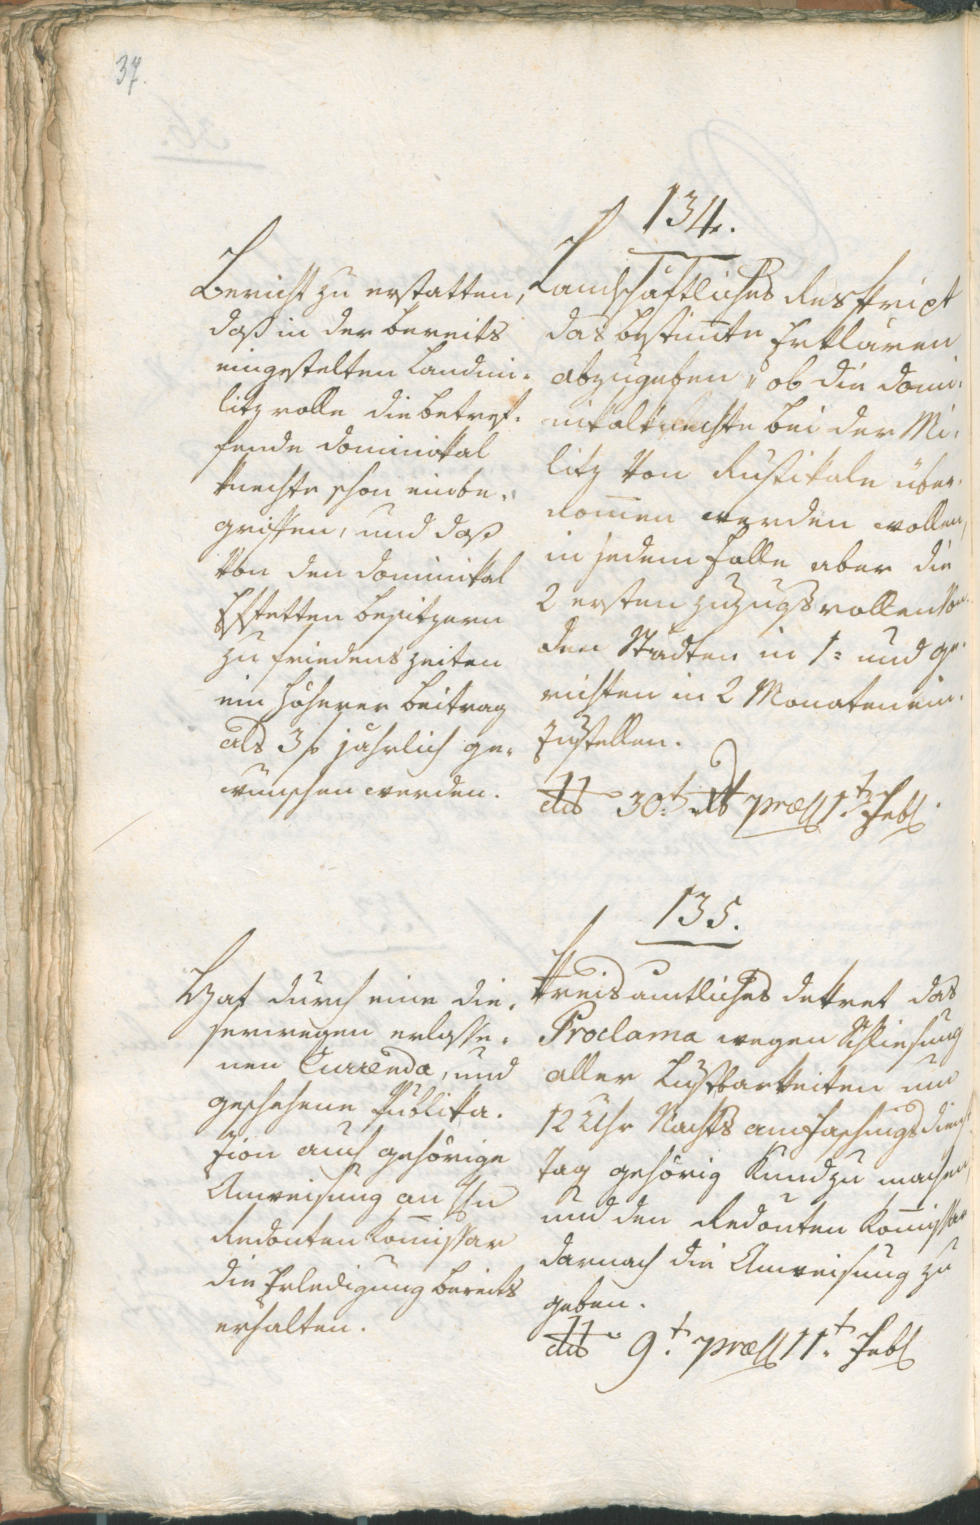 37.
134.
Bericht zu erstatten,
daß in der bereits
eingestelten Landmi-
litz rolle die betref-
fende Dominikal
knechte schon einbe-
griffen, und daß
von den Dominikal
besitzern
zu friedenszeiten
ein höherer Beitrag
als 3 f jährlich ge-
wünschen werden.
Landschäftliches Reskript
das bestim̅te Erklären
abzugeben, ob die Domi-
nikalknechte bei der Mi-
litz von Rustikale über-
nom̅en werden wollen,
in jedem Falle aber die
2 ersten zuzugsrollen von
den Städten in 1= und ge-
richten in 2 Monaten ein-
zustellen.
dto 30t præs 1t Feb
135.
Hat durch eine die-
serwegen erlasse-
nen Currenda, und
geschehene Publika-
zion auch gehörige
Anweisung an
Redouten Kom̅issar
die Erledigung bereits
erhalten.
Kreisamtliches Dekret das
Proclama wegen Schliesung
aller Lustbarkeiten um
12 Uhr Nachts am Faschings dienst
tag gehörig Kund zu machen
und den Redouten Kom̅issar
darnach die Anweisung zu
geben.
dto 9t præs 11t Feb